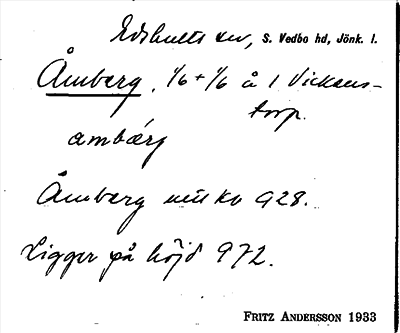 Edshults sn, S. Vedbo hd, Jönk. l.
Åmberg, 1/6 + 1/6 å 1 Vickens-
torp.
ambärg
Åmberg nuko 928.
Ligger på höjd 972.
FRITZ ANDERSSON 1933